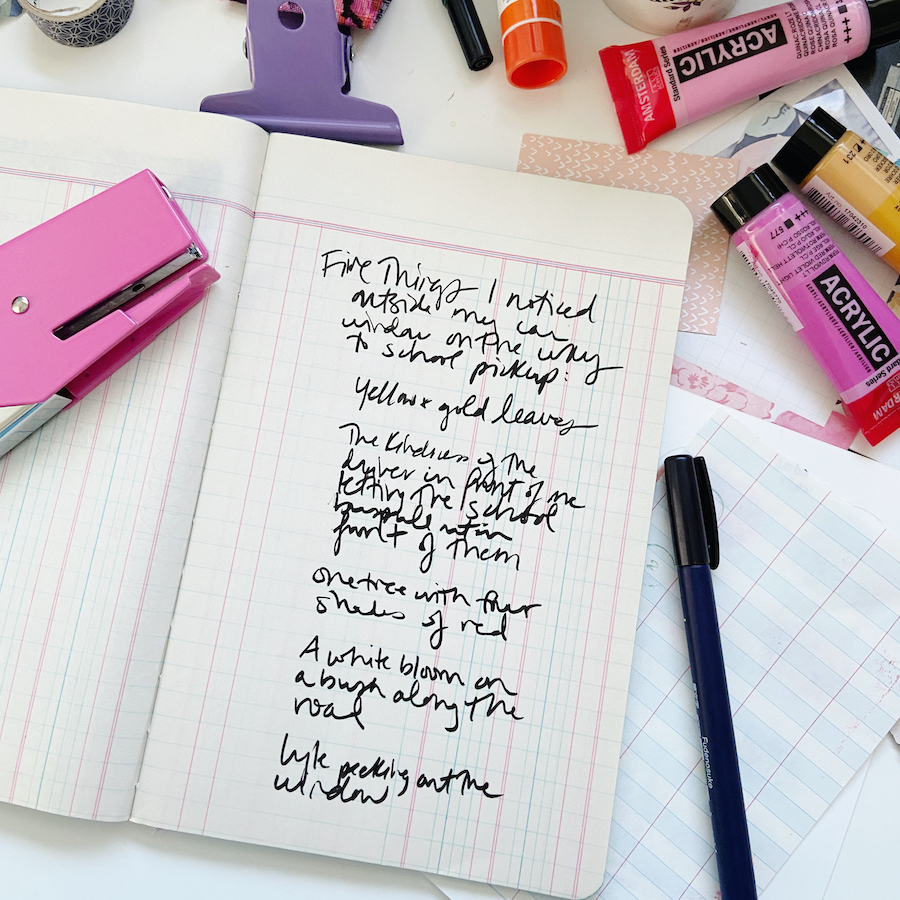 Five Things I noticed
outside my car
window on the way
to school pickup:
Yellow & gold leaves
The kindness of the
driver in front of me
letting the school
bus pull out in
front of them
one tree with four
shades of red
A white bloom on
a bush along the
road
Lyle peeking out the
window
ACRYLIC
Standard Series
AMSTERDAM
ACRYLIC
Standard Series
577
231
Fudenosuke